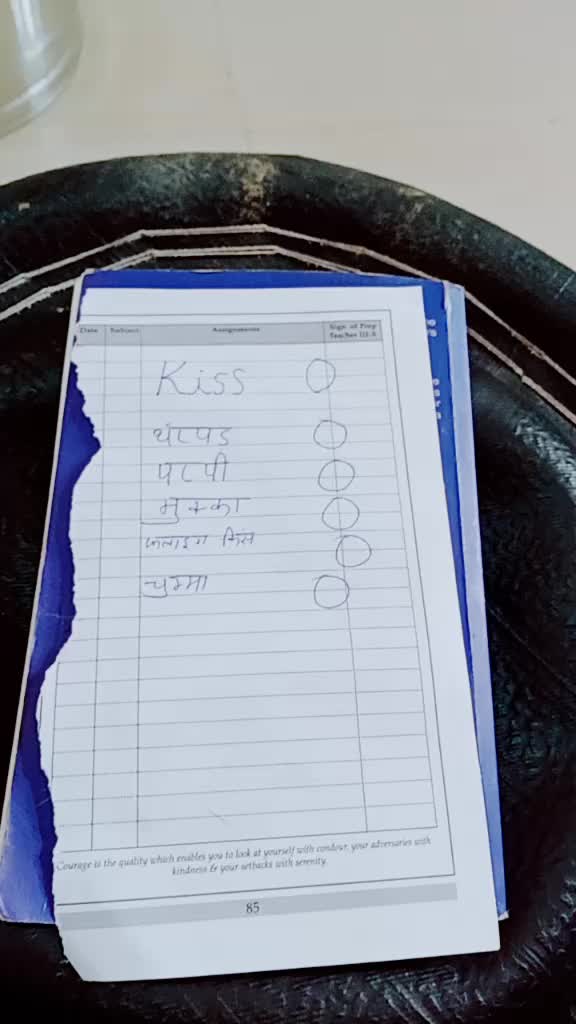 Date Subject Assignments Sign of Prep Teacher III-X
Kiss
थप्पड
पप्पी
मुक्का
फ्लाइंग किस
चुम्मा
Courage is the quality which enables you to look at yourself with condour, your adversaries with
kindness & your setbacks with serenity.
85